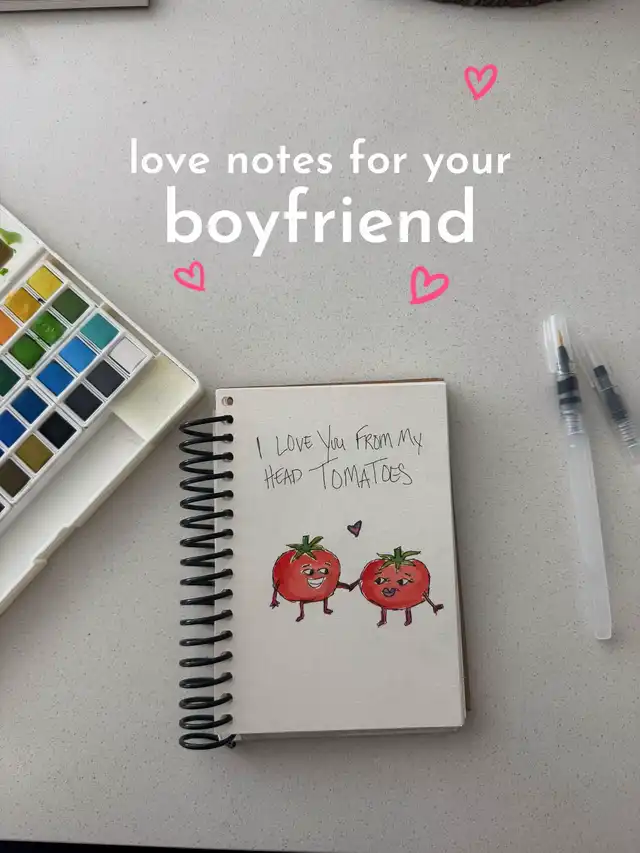 love notes for your
boyfriend
I LOVE YOU FROM MY
HEAD TOMATOES